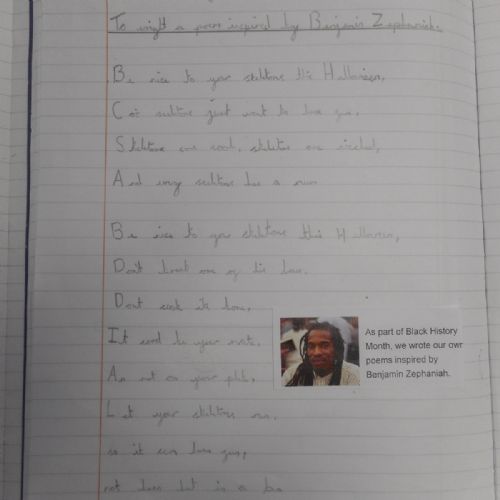 To wright a poem inspired by Benjamin Zephaniah.
Be nice to your skeletons this Halloween,
Cos just want to have fun,
Skeletons are cool, skeletons are wicked,
And every has a mum
Be nice to your skeletons this Halloween,
Don't one of his
Dont cook its bone,
It could be your mate,
An not on your plate,
Let your skeletons run.
so it can have fun,
not
As part of Black History
Month, we wrote our own
poems inspired by
Benjamin Zephaniah.